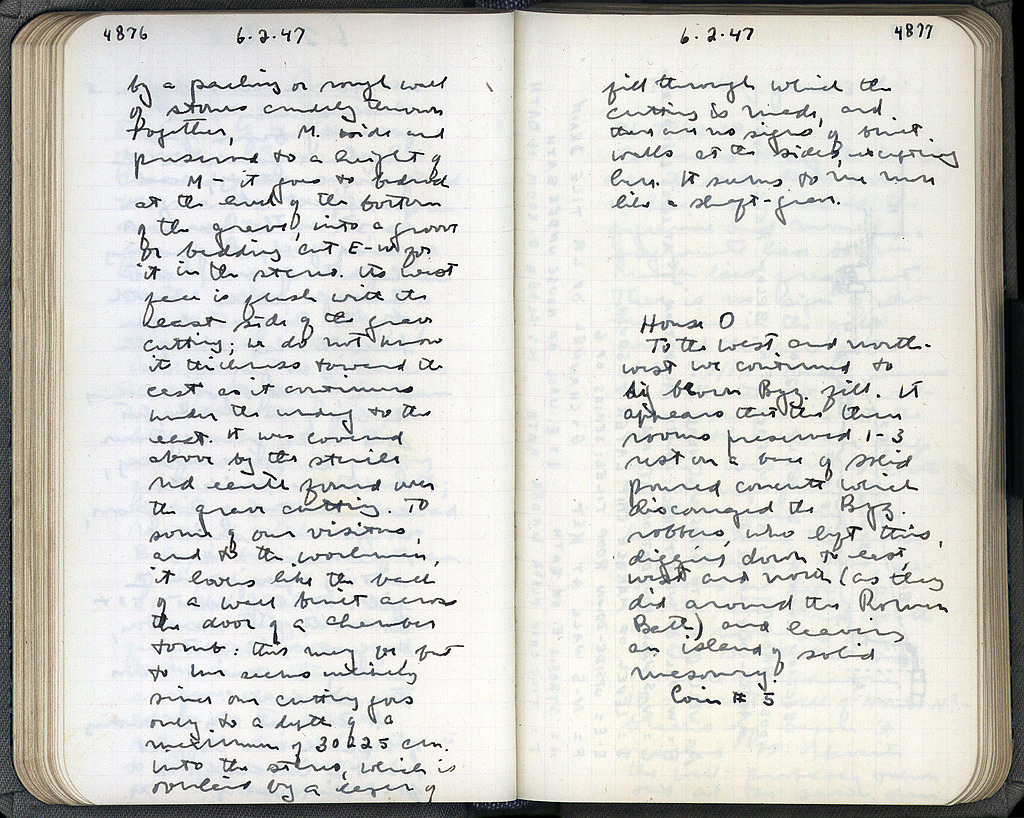 4876
6·2·47
by a packing or rough wall
of stones crudely thrown
together, M. wide and
preserved to a height of
M - it goes to bedrock
at the level of the bottom
of the grave, into a groove
or bedding cut E-W for
it in the stereo. Its west
face is flush with the
east side of the grave
cutting; we do not know
its thickness toward the
east as it continues
under the to the
east. It was covered
above by the sterile
red earth found over
the grave cutting. To
some of our visitors,
and to the workmen,
it looks like the back
of a wall built across
the door of a chamber
tomb: this may be but
to me seems unlikely
since our cutting goes
only to a depth of a
maximum of 25 cm.
into the stereo, which is
overlaid by a layer of
6·2·47
4877
fill through which the
cutting is made, and
there are no signs of built
walls at the sides, excepting
here. It seems to me more
like a shaft-grave.
House O
To the west and north-
west we continued to
dig brown Byz. fill. It
appears that the three
rooms preserved 1-3
rest on a base of solid
poured concrete which
discouraged the Byz.
robbers, who left this,
digging down to east,
west and north (as they
did around the Roman
Bath) and leaving
an island of solid
masonry.
Coin # 5